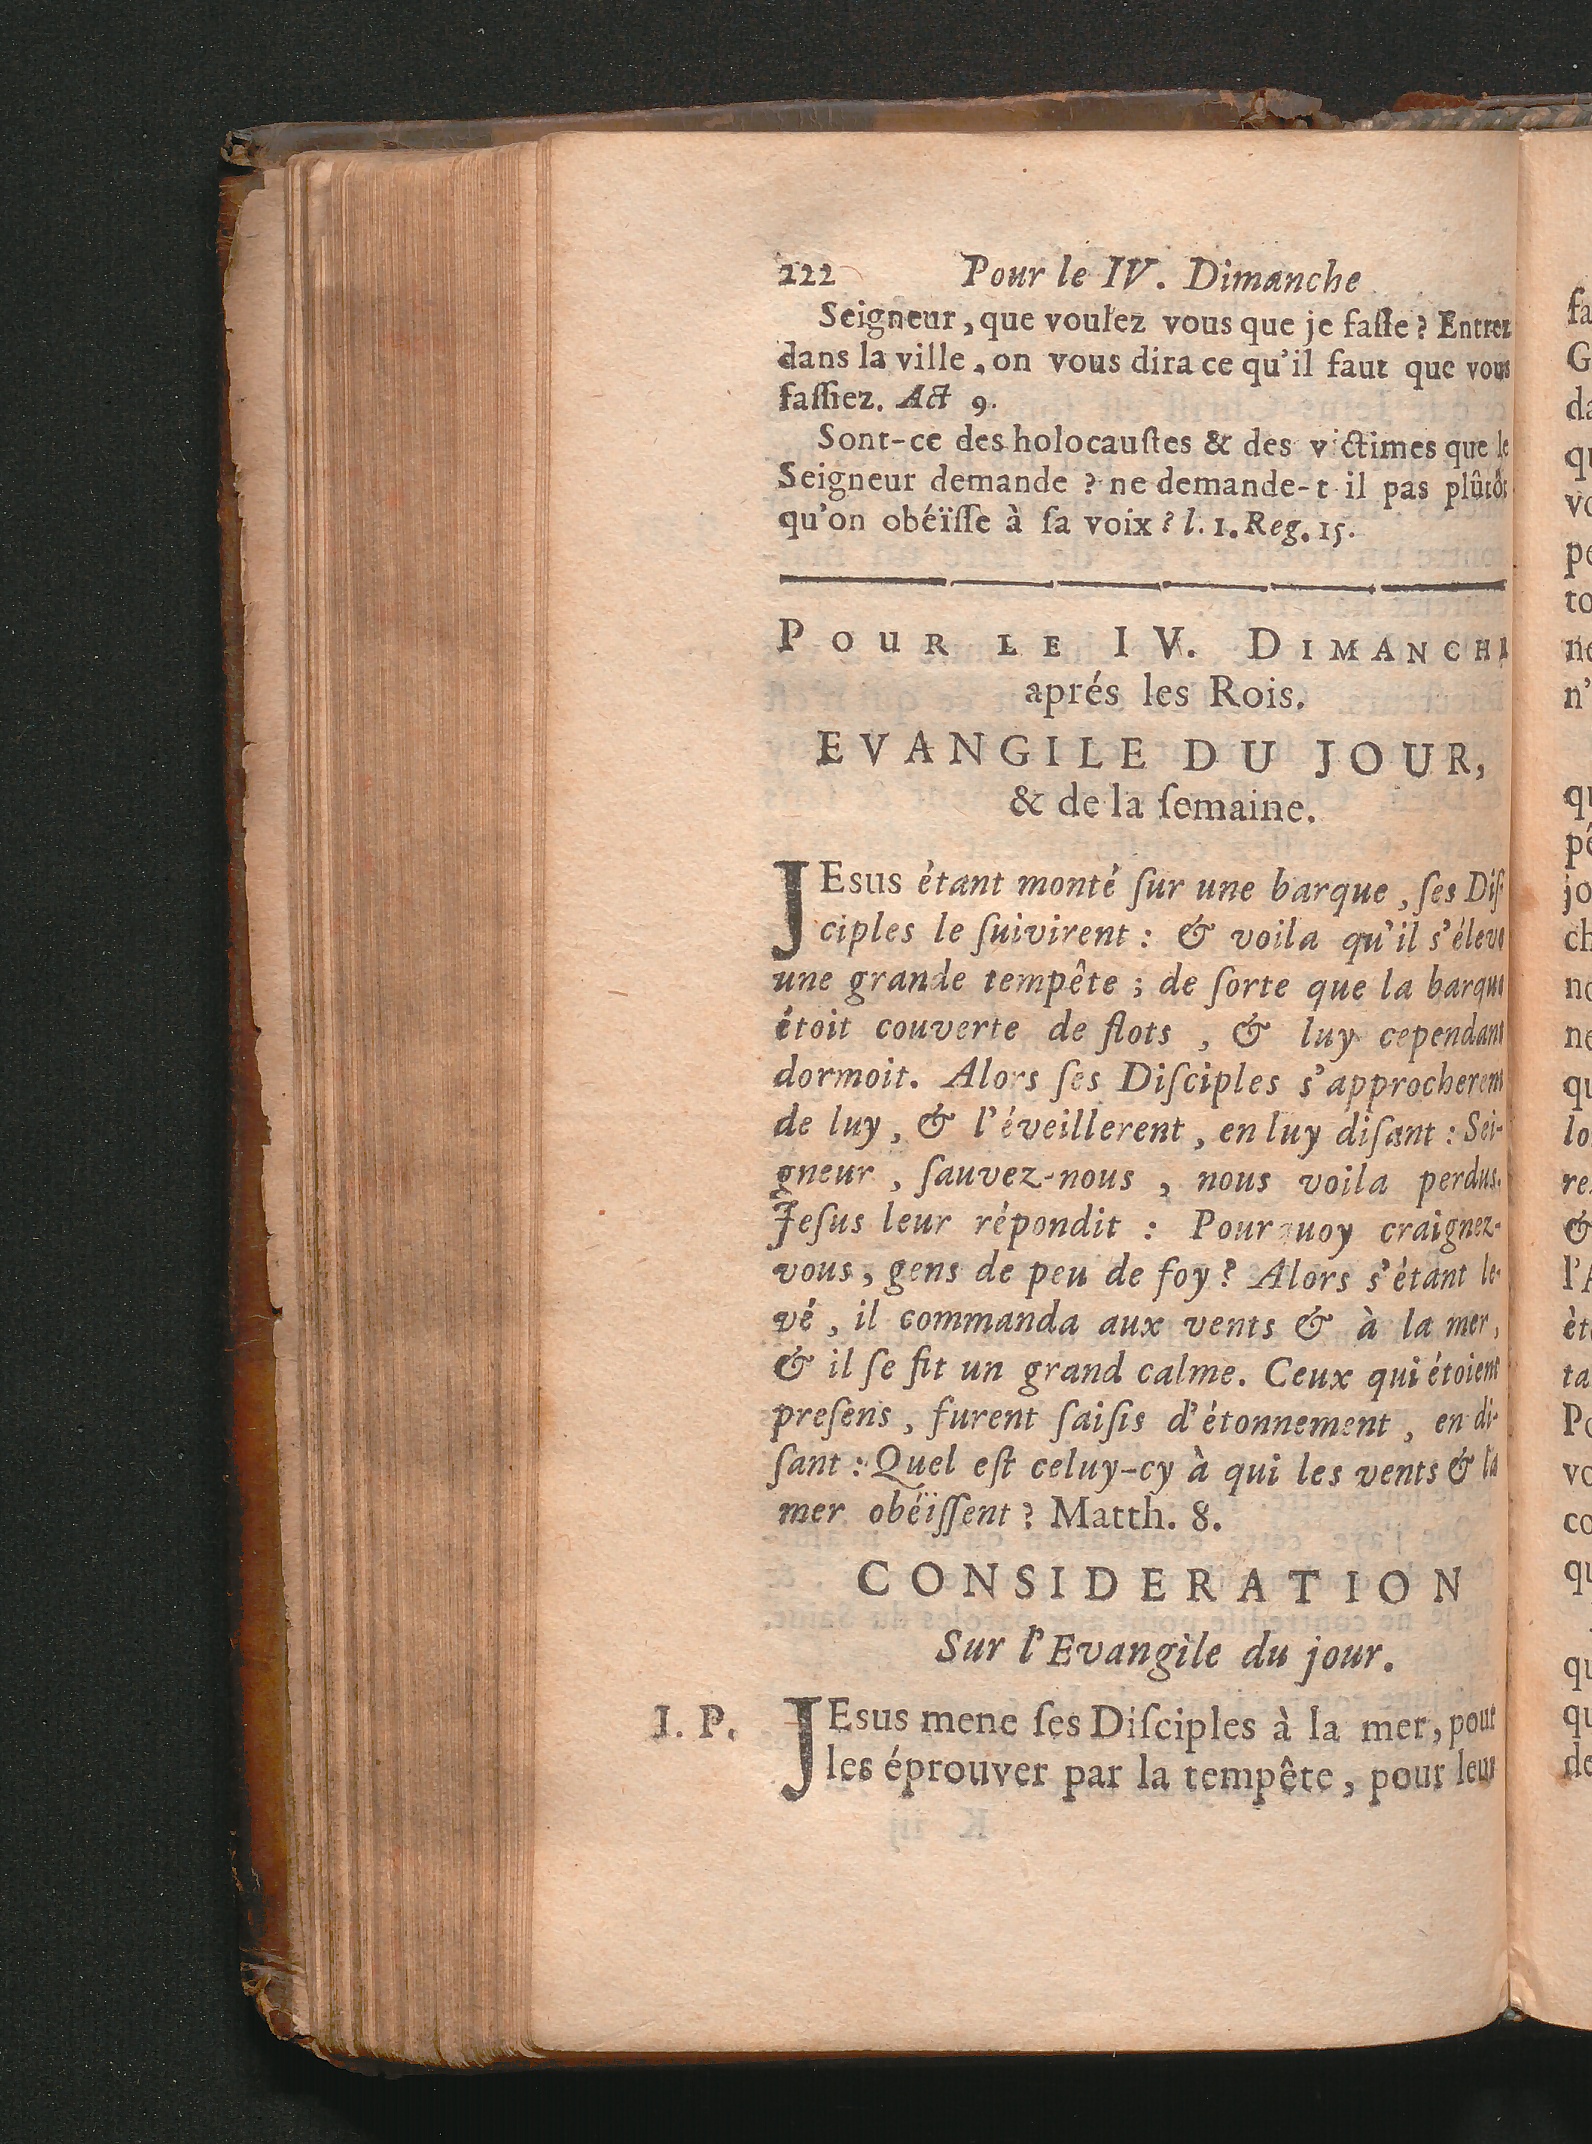 222 Pour le IV. Dimanche
Seigneur, que voulez vous que je fasse? Entrez
dans la ville, on vous dira ce qu'il faut que vous
faſſiez. Act 9.
Sont-ce des holocauſtes & des victimes que le
Seigneur demande ? ne demande-t il pas plûtôt
qu'on obéïſſe à ſa voix? l. 1. Reg. 15.
POUR LE IV. DIMANCHE
aprés les Rois.
EVANGILE DU JOUR,
& de la ſemaine.
JEsus étant monté ſur une barque, ſes Diſ-
ciples le ſuivirent : & voila qu'il s'éleve
une grande tempête ; de ſorte que la barque
étoit couverte de flots , & luy cependant
dormoit. Alors ſes Diſciples s'approcherent
de luy, & l'éveillerent, en luy diſant : Sei-
gneur , ſauvez-nous , nous voila perdus.
Jeſus leur répondit : Pourquoy craignez-
vous, gens de peu de foy? Alors s'étant le-
vé, il commanda aux vents & à la mer,
& il ſe fit un grand calme. Ceux qui étoient
preſens, furent ſaiſis d'étonnement, en di-
ſant : Quel eſt celuy-cy à qui les vents & la
mer obéïſſent ? Matth. 8.
CONSIDERATION
Sur l'Evangile du jour.
I. P. JEsus mene ſes Diſciples à la mer, pour
les éprouver par la tempête, pour leur